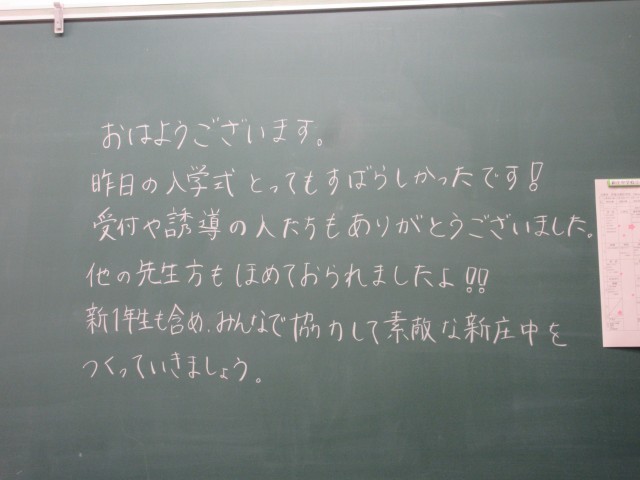 おはようございます。
昨日の入学式とってもすばらしかったです!
受付や誘導の人たちもありがとうございました。
他の先生方もほめておられましたよ!!
新1年生も含め、みんなで協力して素敵な新庄中を
つくっていきましょう。